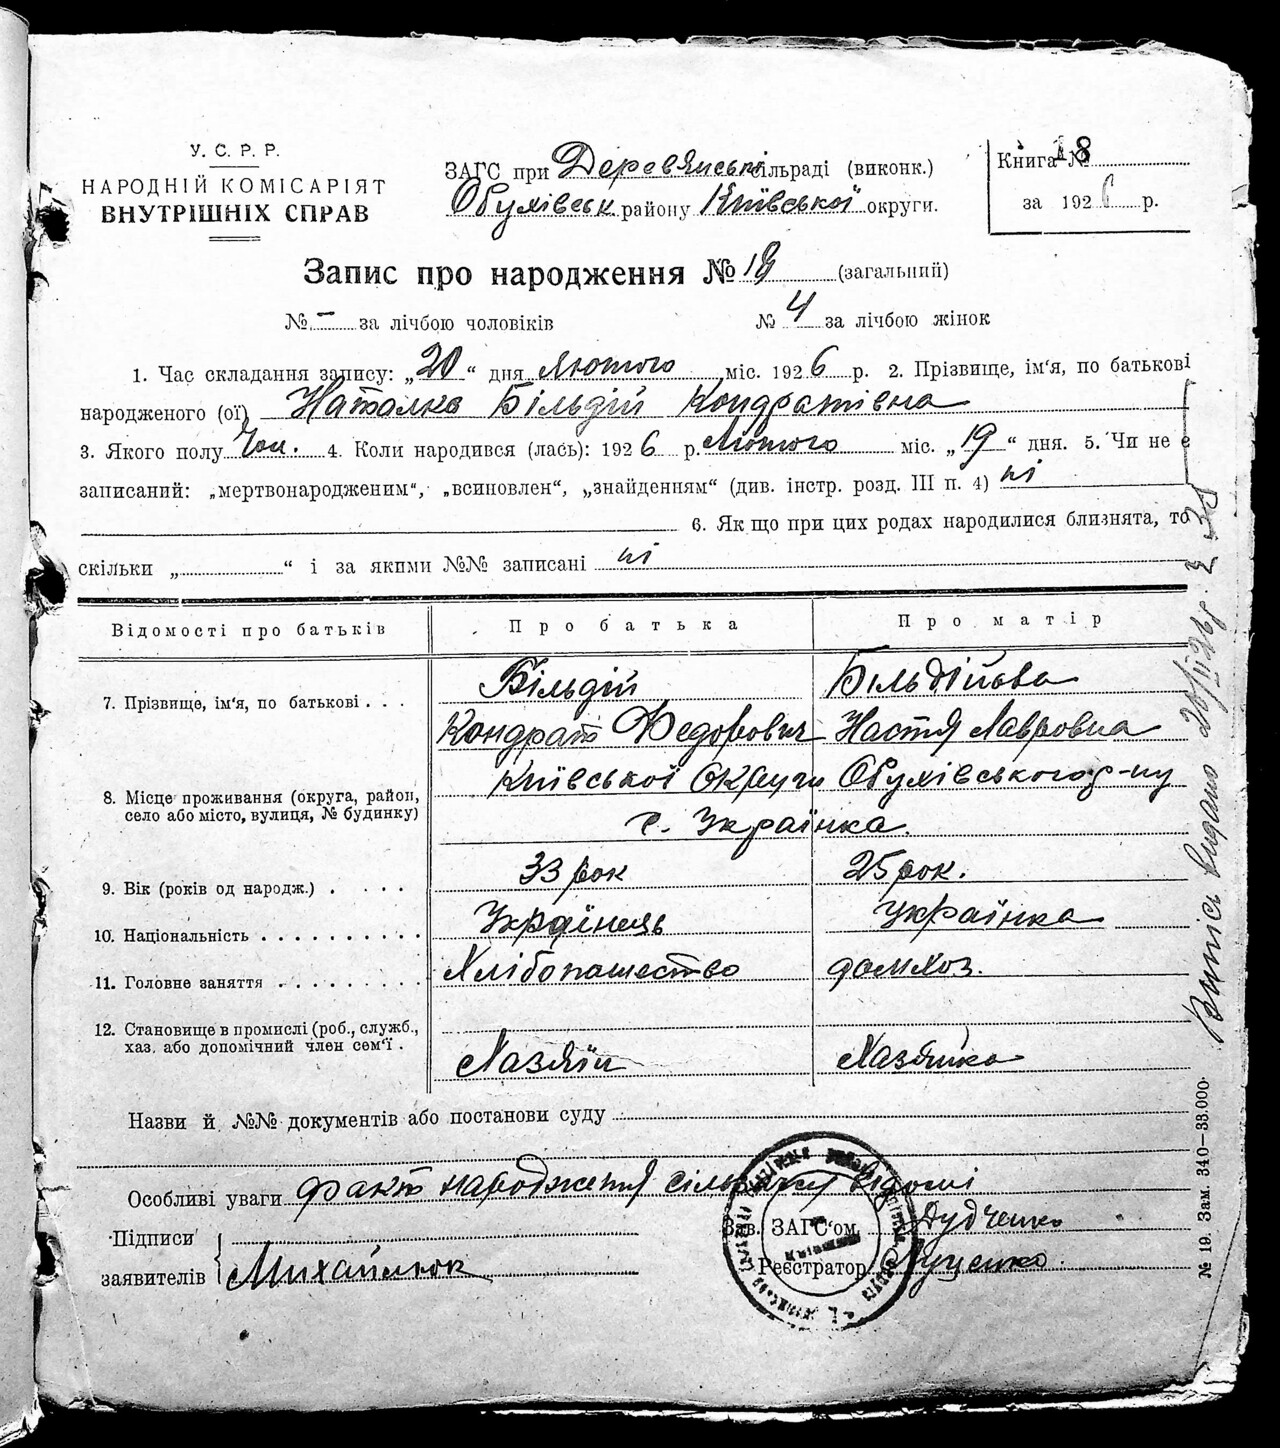 У. С. Р. Р.
НАРОДНІЙ КОМІСАРІЯТ
ВНУТРІШНІХ СПРАВ
ЗАГС при Деревянські сільраді (виконк.)
Обухівськ району Київської округи.
Книга № 18
за 1926 р.
Запис про народження № 18 (загальний)
№ - за лічбою чоловіків № 4 за лічбою жінок
1. Час складання запису: „20“ дня Лютого міс. 1926 р. 2. Прізвище, ім‘я, по батькові
народженого (ої) Наталка Більдій Кондратівна
3. Якого полу Чол. 4. Коли народився (лась): 1926 р. Лютого міс. „19“ дня. 5. Чи не є
записаний: „мертвонародженим“, „всиновлен“, „знайденням“ (див. інстр. розд. III п. 4) ні
6. Як що при цих родах народилися близнята, то
скільки „ “ і за якими №№ записані ні
Відомості про батьків Про батька Про матір
7. Прізвище, ім‘я, по батькові . . . Більдій Більдійова
Кондрат Федорович Настя Лавровна
8. Місце проживання (округа, район, Київської Округи Обухівського р-ну
село або місто, вулиця, № будинку) с. Українка.
9. Вік (років од народж.) . . . . 33 рок 25 рок.
10. Національність . . . . . . . . . . Українець Українка
11. Головне заняття . . . . . . . . . Хлібопашество домхоз.
12. Становище в промислі (роб., служб.,
хаз. або допомічний член сем‘ї . Хазяїн Хазяйка
Назви й №№ документів або постанови суду
Особливі уваги факт народження сільраді відомі
Підписи
заявителів Михайлюк
Зав. ЗАГС‘ом Дудченко
Реєстратор Луценко.
Випісь видано 20/II 26р.
№ 19. Зам. 340—33.000.